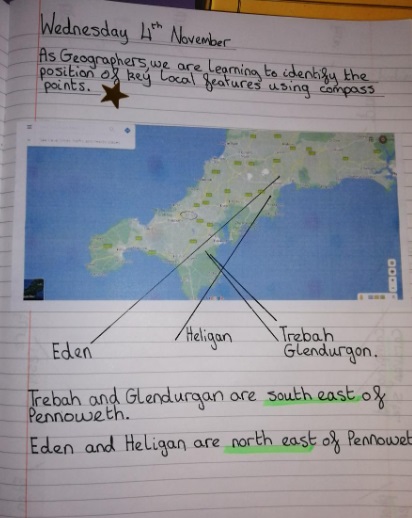 Wednesday 4th November
As Geographers, we are learning to identify the
position of key local features using compass
points.
Eden
Heligan
Trebah
Glendurgon.
Trebah and Glendurgan are south east of
Pennoweth.
Eden and Heligan are north east of Pennowet